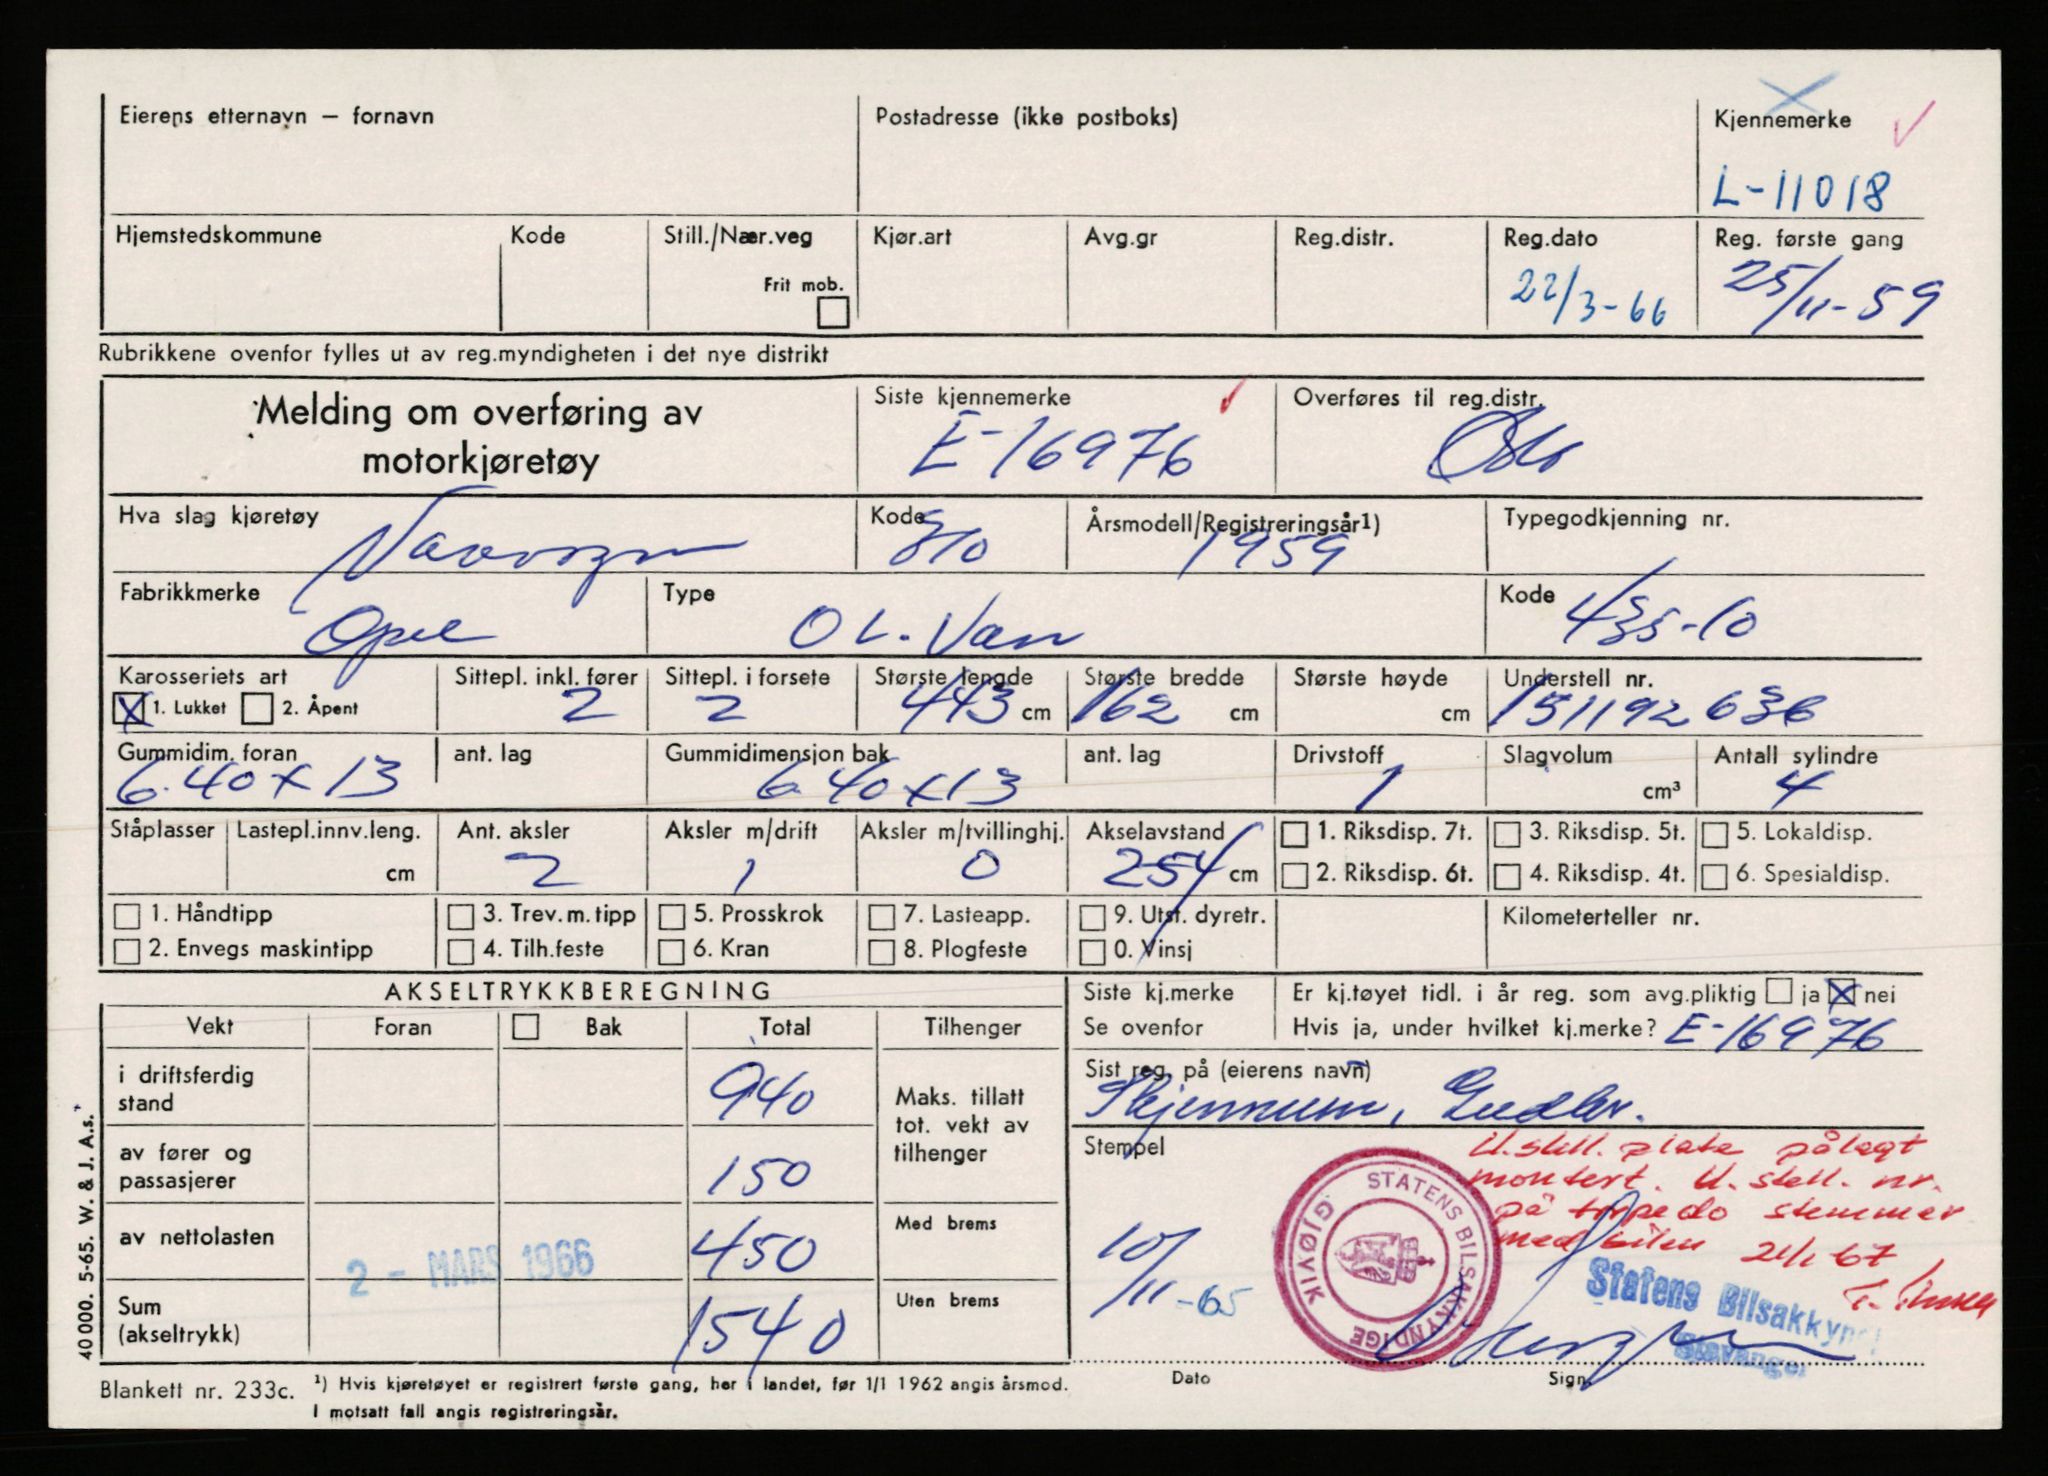 Eierens etternavn – fornavn
Postadresse (ikke postboks)
Kjennemerke
L-11018
Hjemstedskommune
Kode
Still./Nær.veg
Frit mob.
Kjør.art
Avg.gr
Reg.distr.
Reg.dato
22/3-66
Reg. første gang
25/11-59
Rubrikkene ovenfor fylles ut av reg.myndigheten i det nye distrikt
Melding om overføring av
motorkjøretøy
Siste kjennemerke
E-16976
Overføres til reg.distr.
Oslo
Hva slag kjøretøy
Varevogn
Kode
810
Årsmodell/Registreringsår1)
1959
Typegodkjenning nr.
Fabrikkmerke
Opel
Type
OL. Van
Kode
435-10
Karosseriets art
X 1. Lukket 2. Åpent
Sittepl. inkl. fører
2
Sittepl. i forsete
2
Største lengde
443 cm
Største bredde
162 cm
Største høyde
cm
Understell nr.
151192636
Gummidim. foran
6.40x13
ant. lag
Gummidimensjon bak
6.40x13
ant. lag
Drivstoff
1
Slagvolum
cm³
Antall sylindre
4
Ståplasser
Lastepl.innv.leng.
cm
Ant. aksler
2
Aksler m/drift
1
Aksler m/tvillinghj.
0
Akselavstand
254 cm
1. Riksdisp. 7t.
2. Riksdisp. 6t.
3. Riksdisp. 5t.
4. Riksdisp. 4t.
5. Lokaldisp.
6. Spesialdisp.
1. Håndtipp
2. Envegs maskintipp
3. Trev.m.tipp
4. Tilh.feste
5. Prosskrok
6. Kran
7. Lasteapp.
8. Plogfeste
9. Utst. dyretr.
0. Vinsj
Kilometerteller nr.
AKSELTRYKKBEREGNING
Vekt Foran Bak Total Tilhenger
i driftsferdig
stand
940
av fører og
passasjerer
150
av nettolasten
450
Sum
(akseltrykk)
1540
Maks. tillatt
tot. vekt av
tilhenger
Med brems
Uten brems
2 - MARS 1966
Siste kj.merke
Se ovenfor
Er kj.tøyet tidl. i år reg. som avg.pliktig ja X nei
Hvis ja, under hvilket kj.merke? E-16976
Sist reg. på (eierens navn)
Skjennum, Gudbr.
Stempel
U.stell. plate pålagt
montert. U.stell. nr.
på torpedo stemmer
med bilen 21/1 67
10/11-65
STATENS BILSAKKYNDIGE GJØVIK
Statens Bilsakkyndi
Stavanger
Dato
Sign.
40 000. 5-65. W. & J. A.s.
Blankett nr. 233c.
1) Hvis kjøretøyet er registrert første gang, her i landet, før 1/1 1962 angis årsmod.
I motsatt fall angis registreringsår.